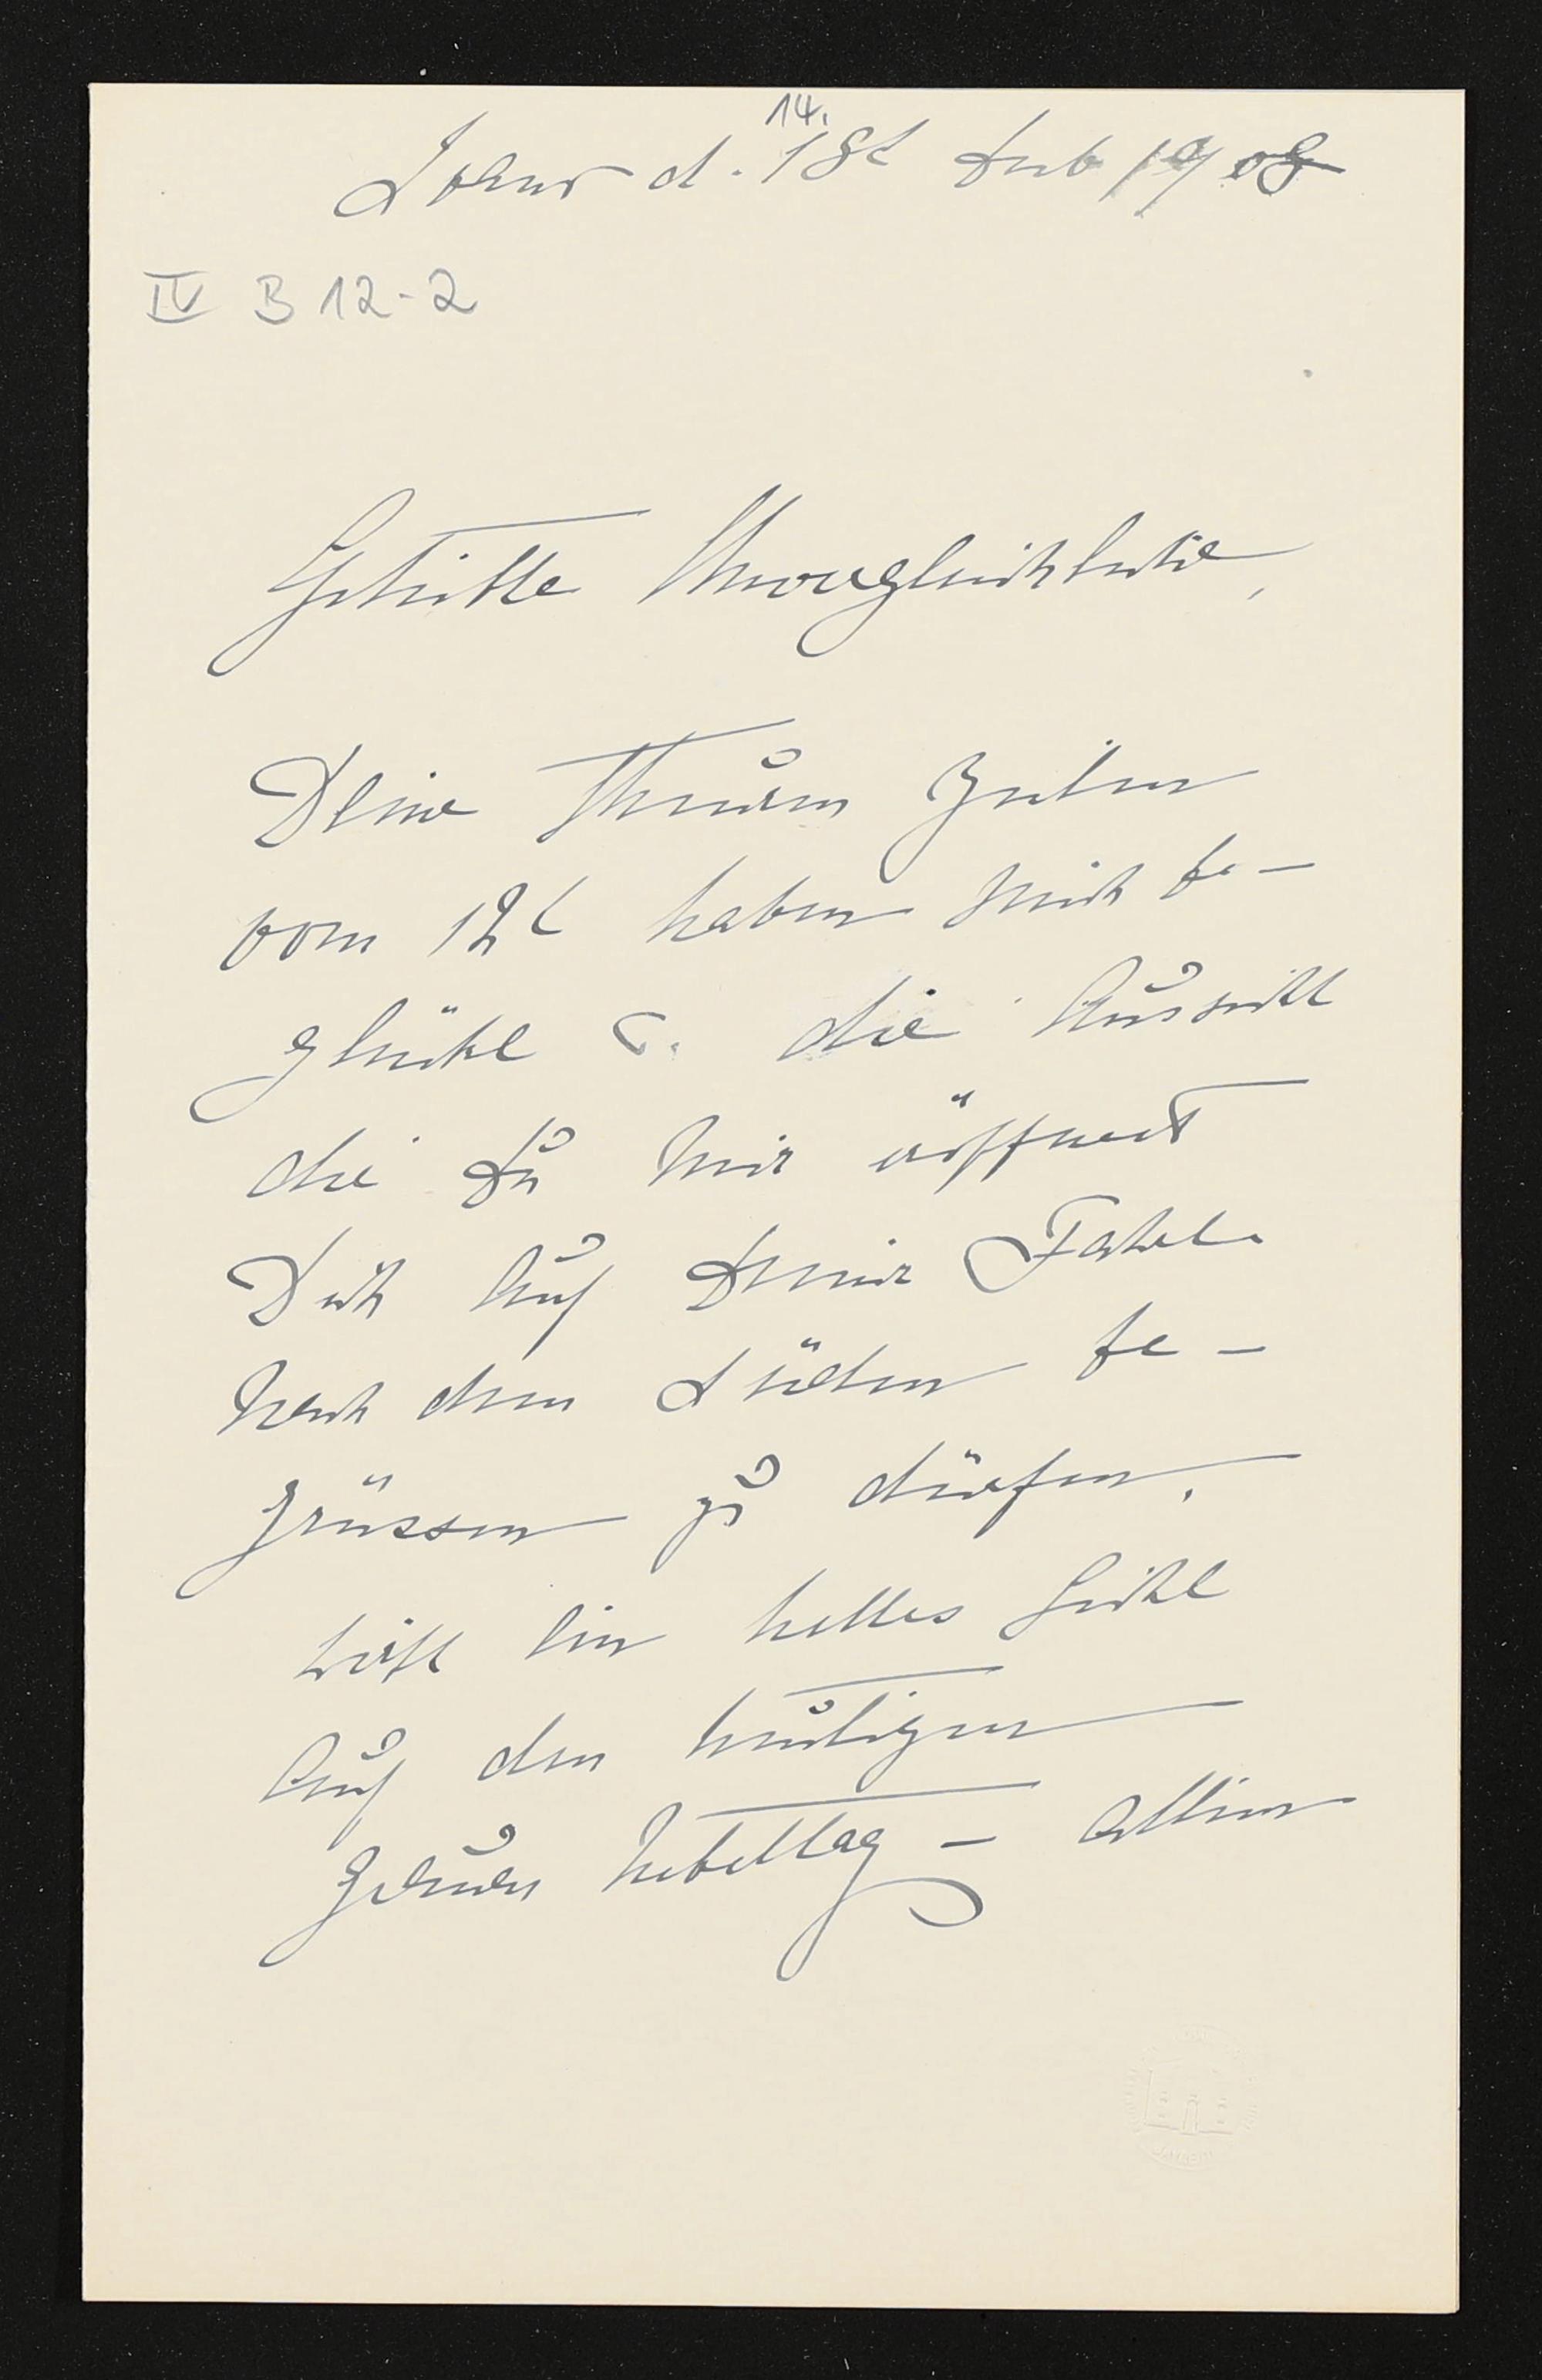 14.
d. 18t Feb 1908
IV B 12-2
Geliebte Unvergleichliche,
Deine Theuren Zeilen
vom 12t haben mich be-
glückt u. die Aussicht
die Du mir eröffnest
Dich auf Deiner Fahrt
nach dem Süden be-
grüssen zu dürfen,
wirft ein helles Licht
auf den heutigen
grauen Nebeltag – allein